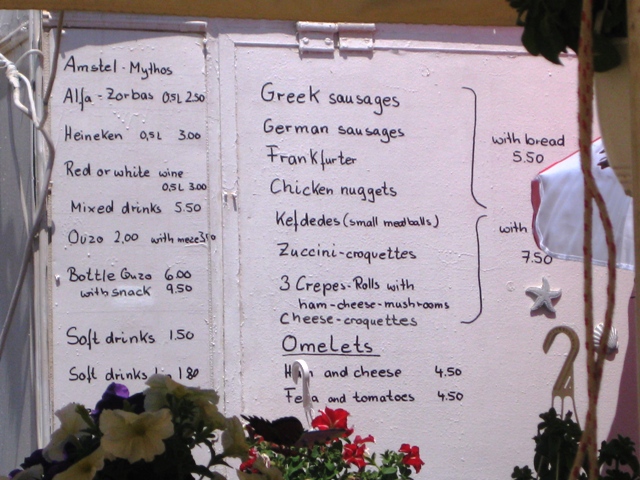 Amstel - Mythos
Alfa - Zorbas 0,5L 2.50
Heineken 0,5L 3.00
Red or white wine
0,5L 3.00
Mixed drinks 5.50
Ouzo 2.00 with meze
Bottle Ouzo 6.00
with snack 9.50
Soft drinks 1.50
Soft drinks 1.80
Greek sausages
German sausages
Frankfurter
Chicken nuggets
with bread
5.50
Kefdedes (small meatballs)
Zuccini-croquettes
3 Crepes-Rolls with
ham-cheese-mushrooms
Cheese-croquettes
with
7.50
Omelets
and cheese 4.50
and tomatoes 4.50